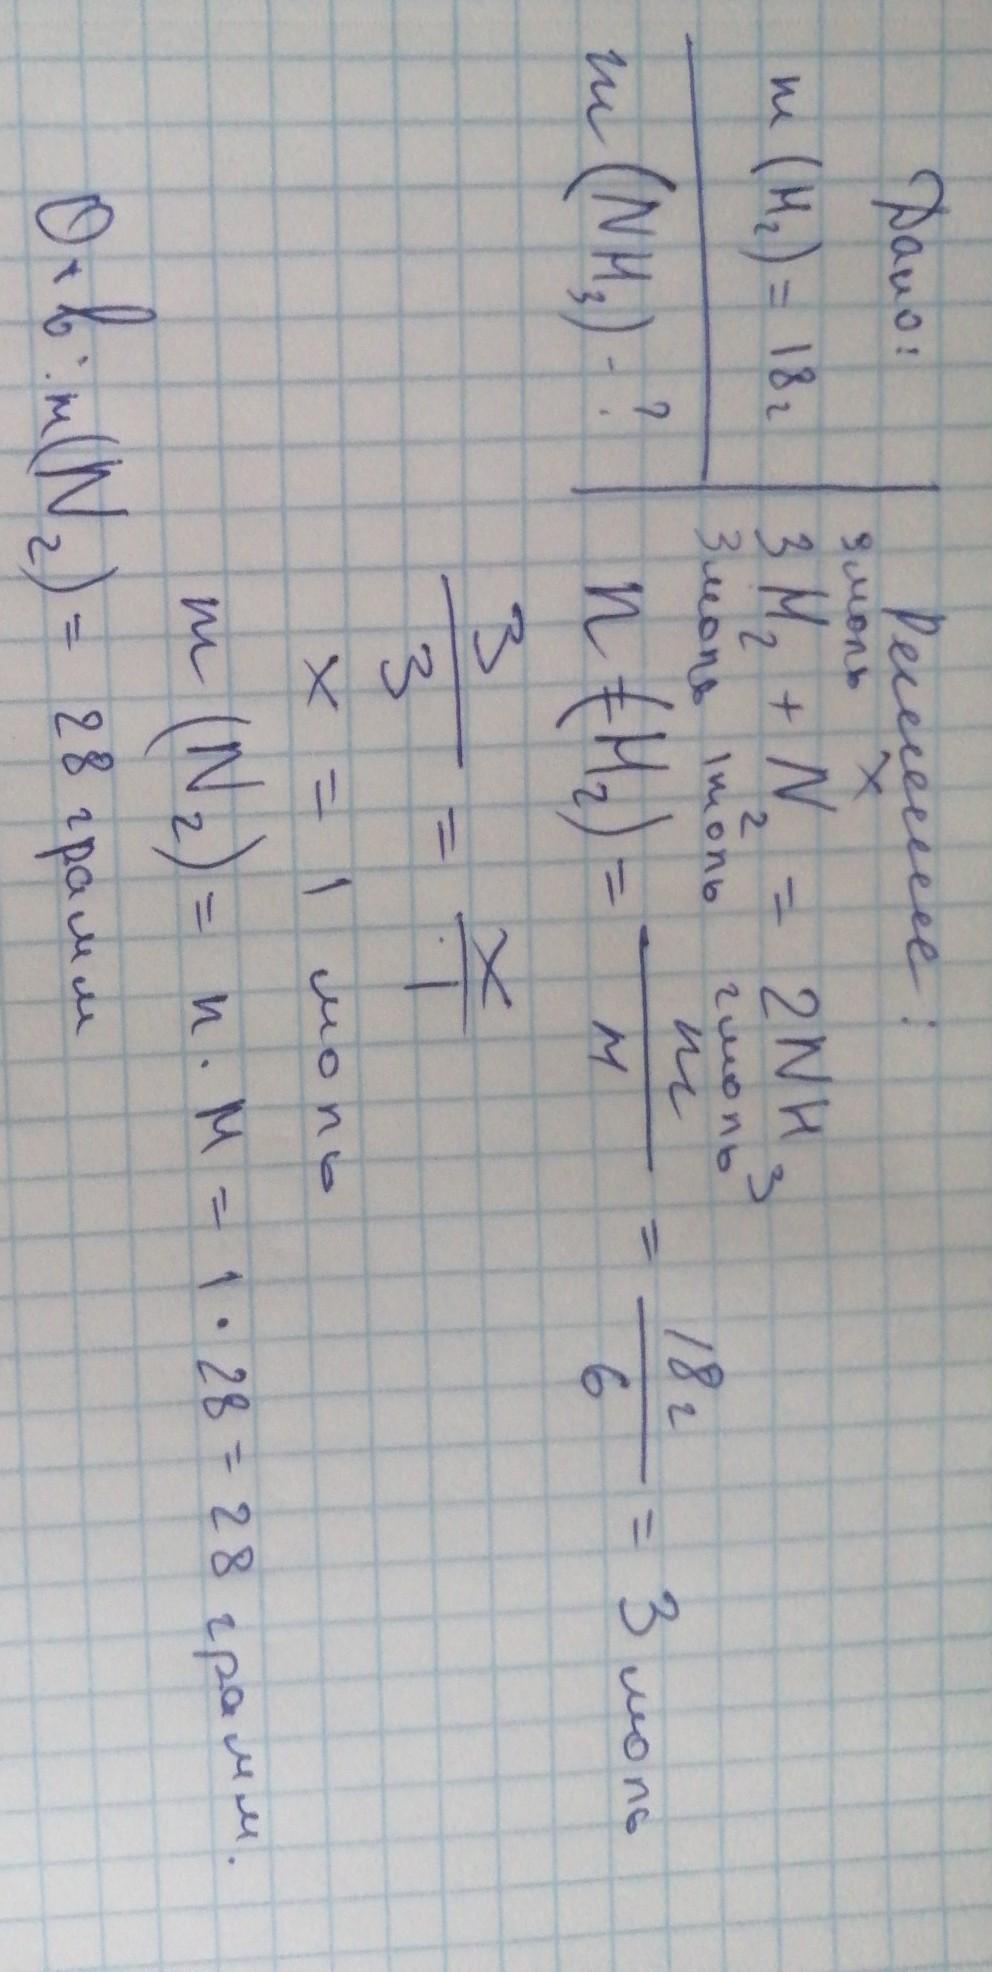 Дано:
m (H₂) = 18г
m (NH₃) - ?
Решение:
9моль x
3H₂ + N₂ = 2NH₃
3моль 1моль 2моль
n (H₂) = m/M = 18г/6 = 3 моль
3/3 = x/1
x = 1 моль
m (N₂) = n · M = 1 · 28 = 28 грамм.
Отв: m(N₂) = 28 грамм